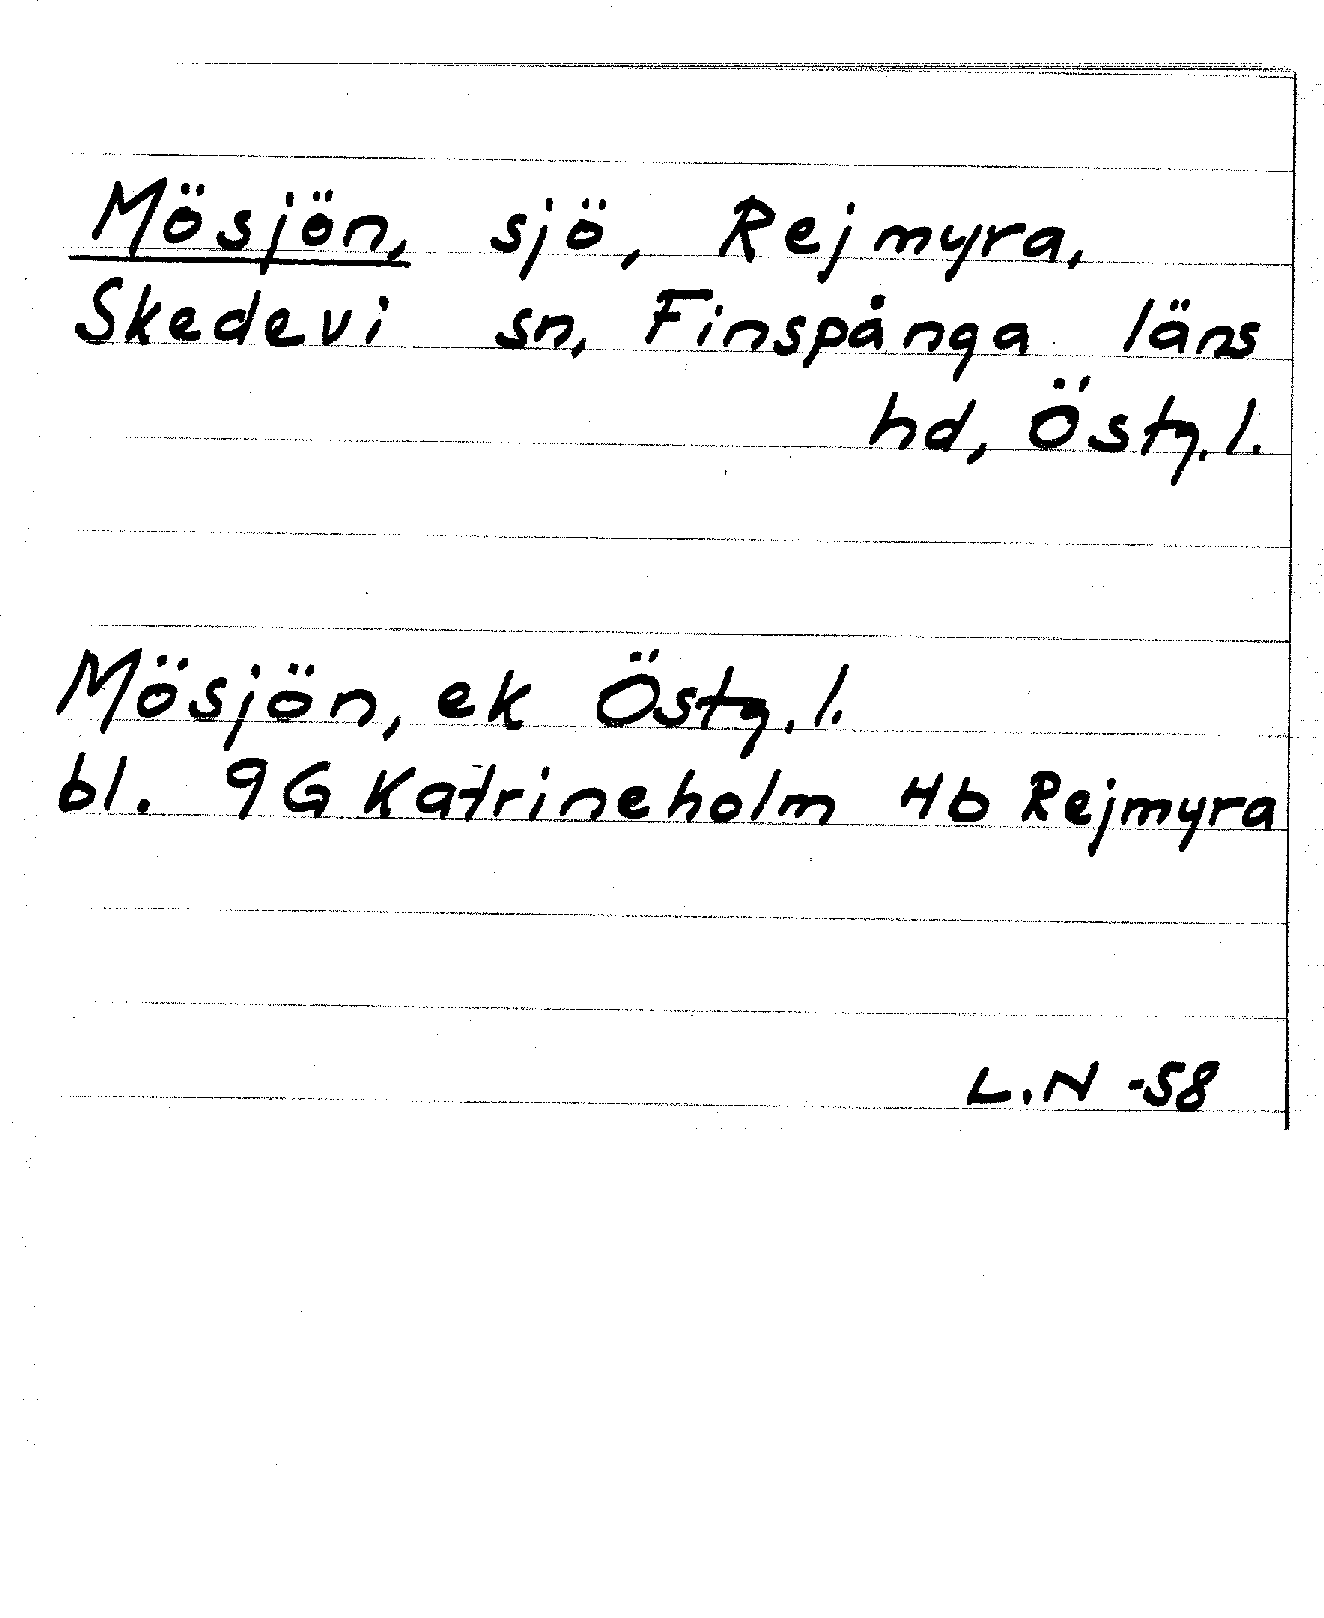 Mösjön, sjö, Rejmyra,
Skedevi sn, Finspånga läns
hd, Östg. l.
Mösjön, ek Östg. l.
bl. 9G Katrineholm 4b Rejmyra
L.N -58